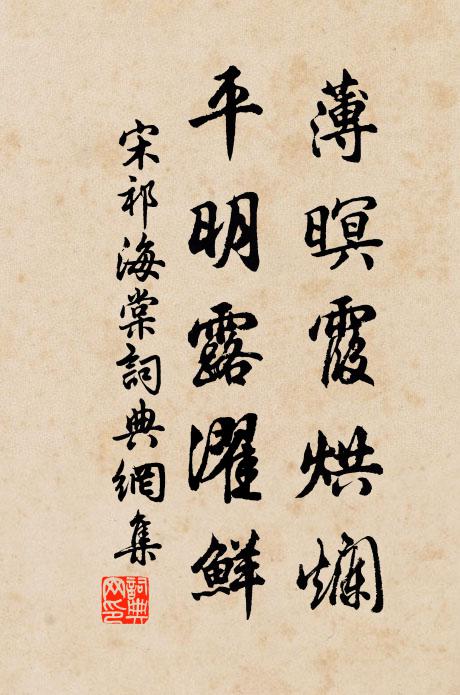 薄暝霞烘爛
平明露濯鮮
宋祁海棠詞典網集
詞典網印